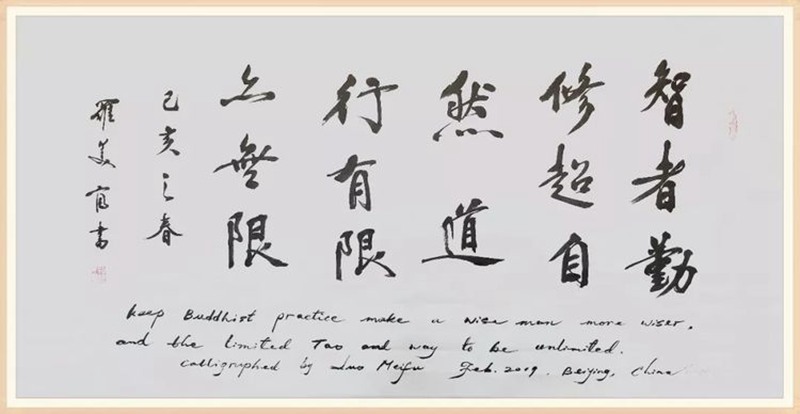 智者勤
修超自
然道
行有限
亦無限
己亥之春
羅美富書
keep Buddhist practice make a wise man more wiser,
and the limited Tao and way to be unlimited.
Calligraphed by Luo Meifu Feb. 2019. Beijing, China